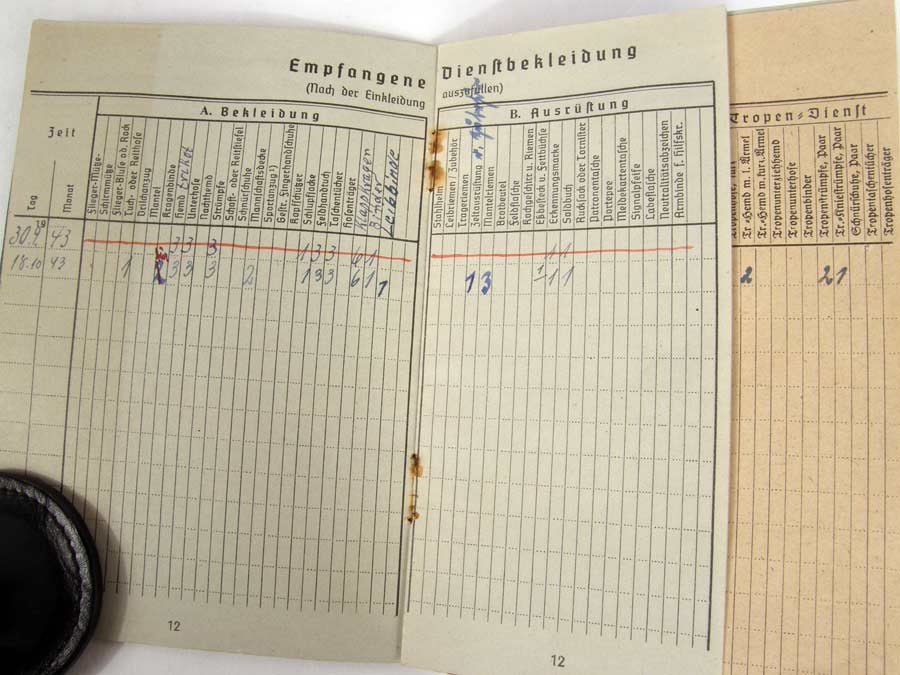 Empfangene Dienstbekleidung
(Nach der Einkleidung auszufüllen)
A. Bekleidung
B. Ausrüstung
Tropen=Dienst
Zeit
Tag
Monat
Flieger=Mütze=
Schirmmütze
Flieger=Bluse od. Rock
Tuch= oder Reithose
Drillichanzug
Mantel
Kragenbinde
Hemd trikot
Unterhose
Nachthemd
Strümpfe
Schaft= oder Reitstiefel
Schnürschuhe
Mannschaftsdecke
Sportanzug¹)
Gestr. Fingerhandschuhe
Kopfschützer
Schlupfjacke
Feldhandtuch
Taschentücher
Hosenträger
Klappkragen
Binder
Leibbinde
Stahlhelm
Leibriemen / Zubehör
Tragriemen
Zeltausrüstung
Mantelriemen
Brotbeutel
Feldflasche
Kochgeschirr u. Riemen
Eßbesteck u. Fettbüchse
Erkennungsmarke
Soldbuch
Rucksack oder Tornister
Patronentasche
Portepee
Meldekartentasche
Signalpfeife
Labeflasche
Neutralitätsabzeichen
Armbinde f. Hilfskr.
Tr.=Hemd m. l. Ärmel
Tr.=Hemd m. kurz. Ärmel
Tropenunterziehhemd
Tropenunterhose
Tropenbinder
Tropenstrümpfe, Paar
Tr.=Kniestrümpfe, Paar
Schnürschuhe, Paar
Tropentaschentücher
Tropenhosenträger
30.9 43 3 3 3 1 3 3 6 1 1 1
18.10 43 1 3 3 3 2 1 3 3 6 1 1 1 3 1 1 1 2 2 1
12
12